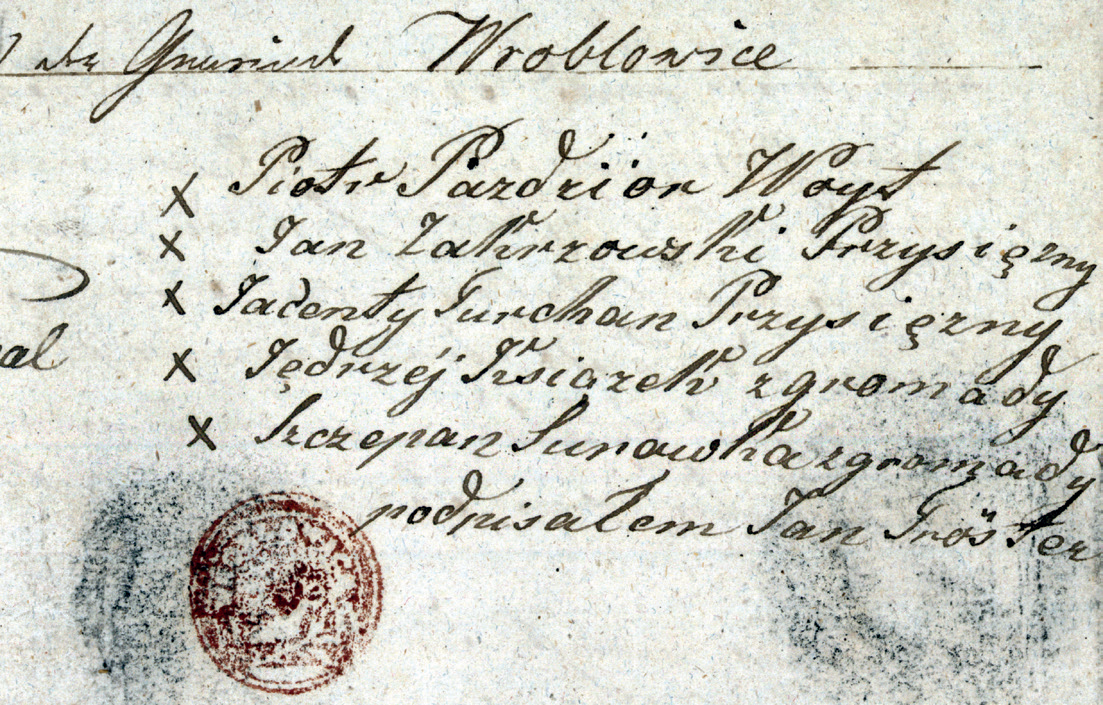 der Gemeinde Wroblowice
x Piotr Pazdzior Woyt
x Jan Zakrzowski Przysięzny
x Jacenty Turchan Przysięzny
al
x Jędrzéj Ksiązek z gromady
x Szczepan Surowka z gromady
podpisałem Jan Tröster